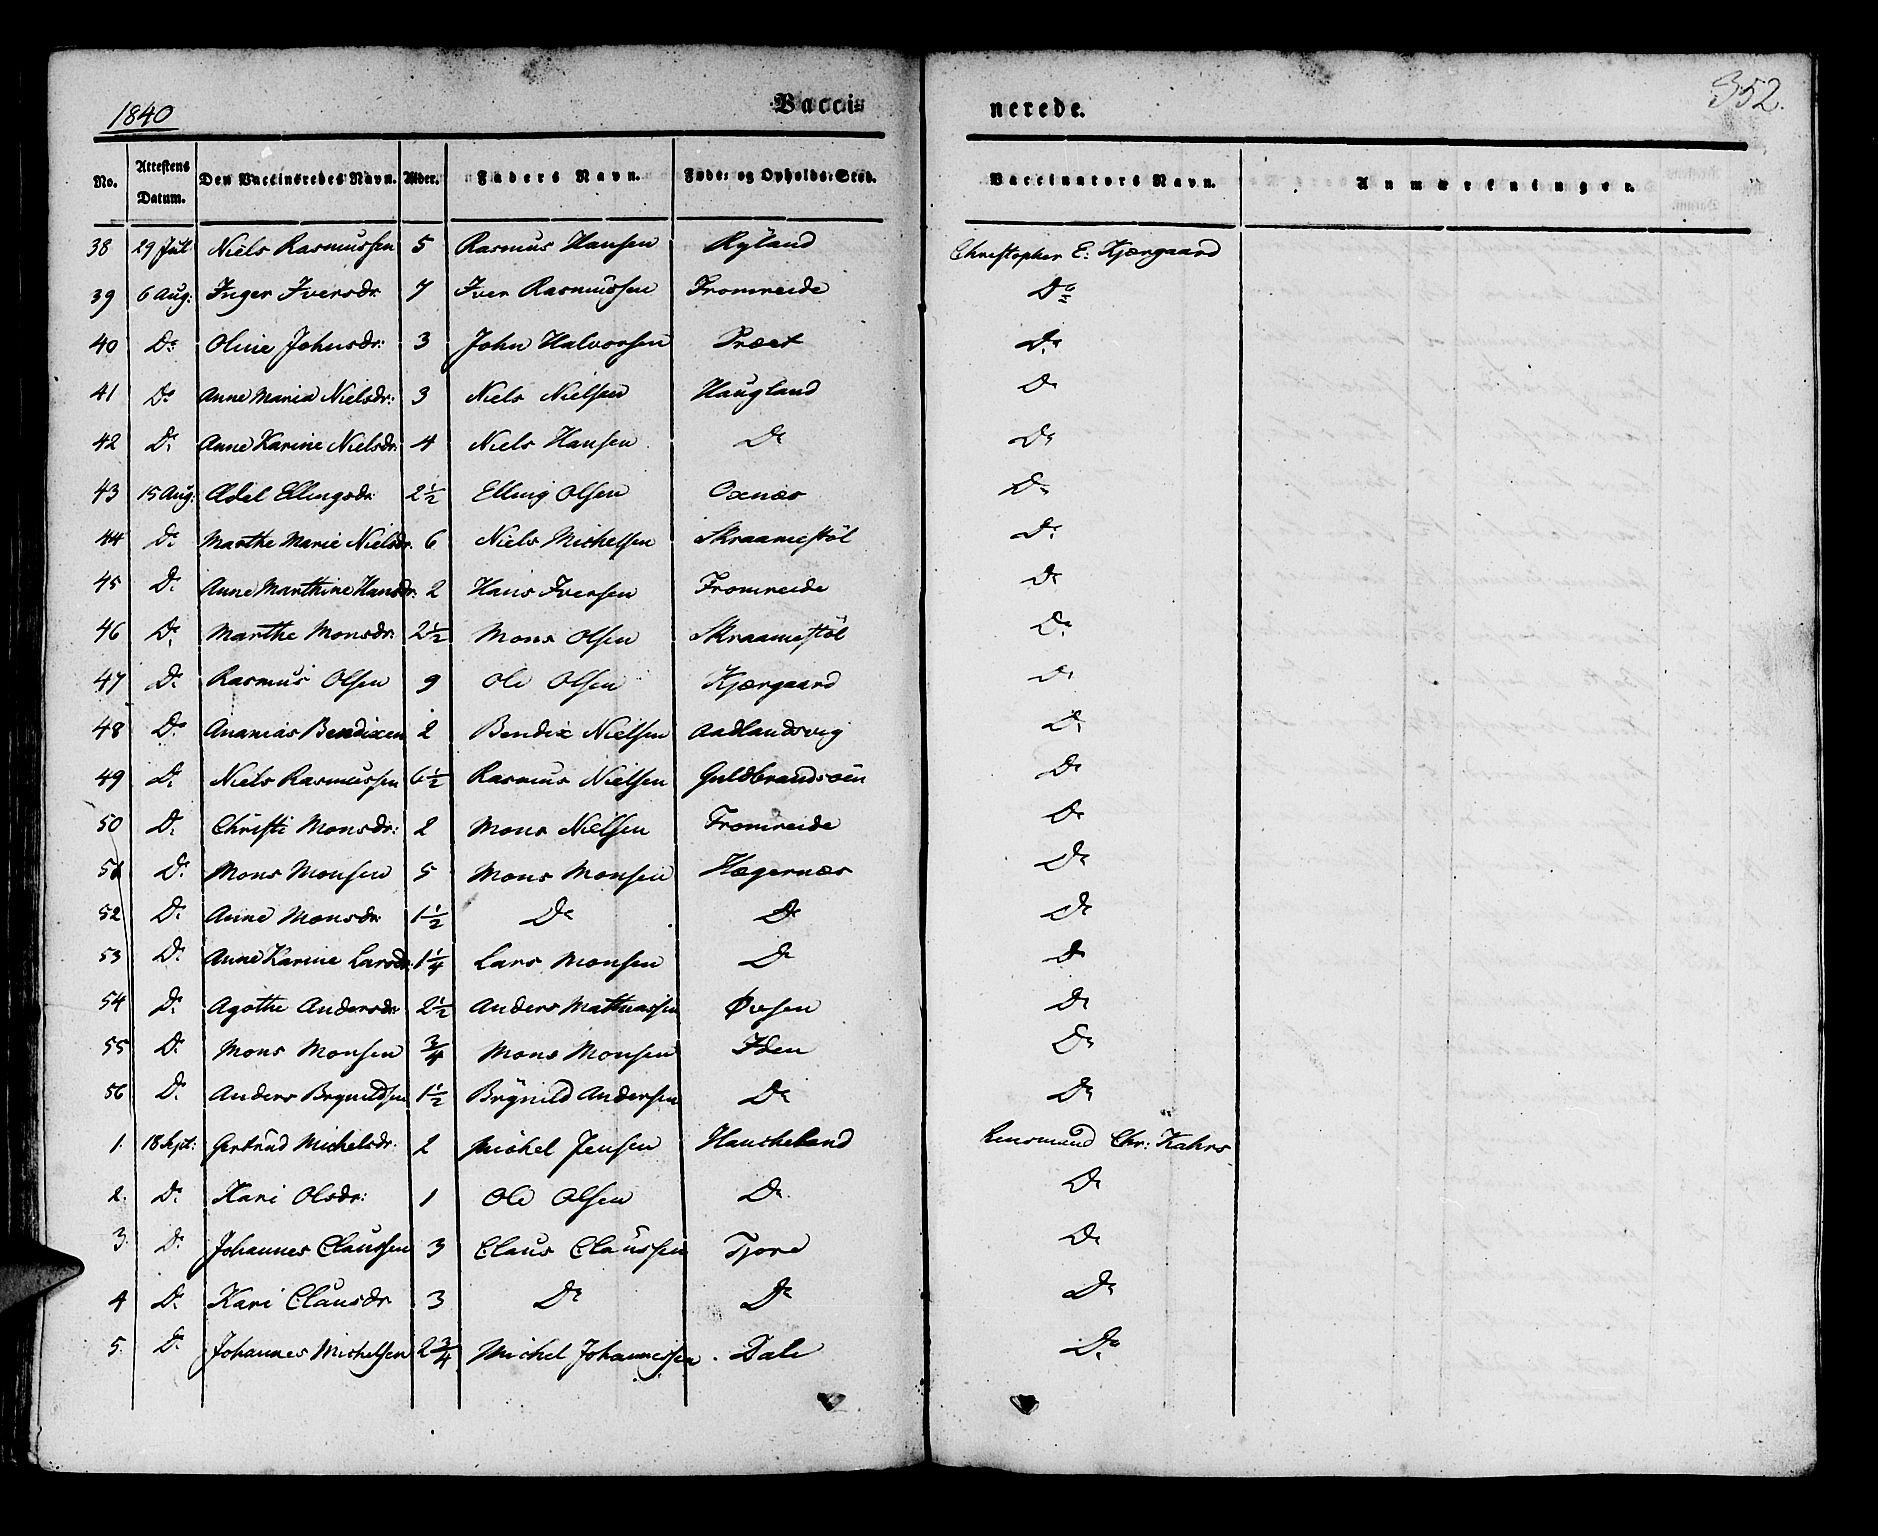 1840 Vacci- nerede. 352.
No. Attestens Datum. Den Vaccineredes Navn. Alder. Faders Navn. Føde- og Opholds-Sted. Vaccinators Navn. Anmærkninger.
38 29 Jul Niels Rasmussen 5 Rasmus Hansen Ryland Christopher E: Kjærgaard
39 6 Aug: Inger Iversdr 7 Iver Rasmussen Fromreide Do
40 Do Oline Johnsdr: 3 John Halvorsen Træet Do
41 Do Anne Maria Nielsdr: 3 Niels Nielsen Haugland Do
42 Do Anne Karine Nielsdr: 4 Niels Hansen Do Do
43 15 Aug: Adel Ellingsdr: 2½ Elling Olsen Oxnæs Do
44 Do Marthe Marie Nielsdr. 6 Niels Michelsen Skraamestöl Do
45 Do Anne Marthine Hansdr: 2 Hans Iversen Fromreide Do
46 Do Marthe Monsdr: 2½ Mons Olsen Skraamestöl Do
47 Do Rasmus Olsen 9 Ole Olsen Kjærgaard Do
48 Do Ananias Bendixen 2 Bendix Nielsen Aadlandsvig Do
49 Do Niels Rasmussen 6½ Rasmus Nielsen Guldbrandsøen Do
50 Do Christi Monsdr: 2 Mons Nielsen Fromreide Do
51 Do Mons Monsen 5 Mons Monsen Hægernæs Do
52 Do Anne Monsdr 1½ Do Do Do
53 Do Anne Karine Larsdr: 1¼ Lars Monsen Do Do
54 Do Agathe Andersdr 2½ Anders Mathiassen Øvsen Do
55 Do Mons Monsen ¾ Mons Monsen Iden Do
56 Do Anders Brynildsen 1½ Brynild Andersen Do Do
1. 18 Sept: Gertrud Michelsdr: 2 Michel Jensen Haucheland Lensmand Chr: Kahrs
2. Do Kari Olsdr: 1 Ole Olsen Do Do
3. Do Johannes Claussen 3 Claus Claussen Tjore Do
4 Do Kari Clausdr 3 Do Do Do
5. Do Johannes Michelsen 2¾ Michel Johannessen Dale Do